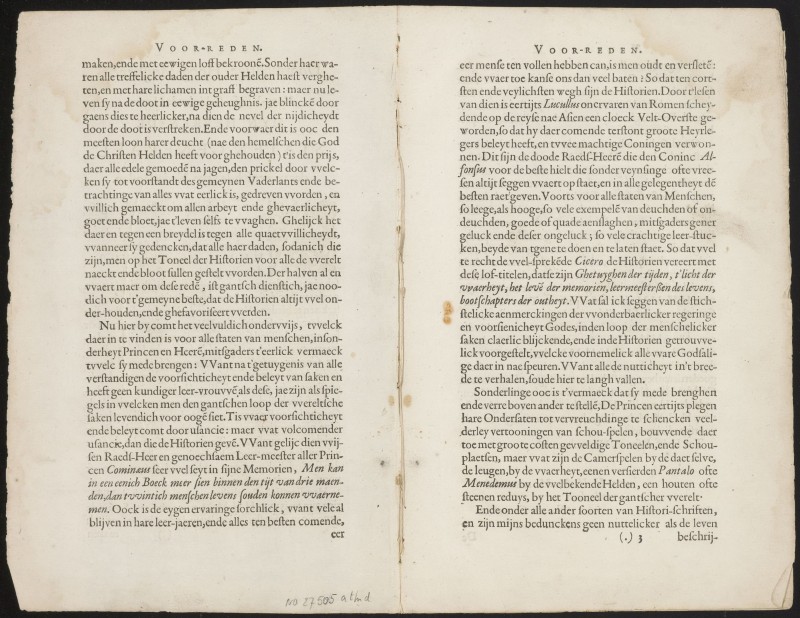 VOOR-REDEN.
maken,ende met eewigen loft bekroonẽ.Sonder haer wa-
ren alle treffelicke daden der ouder Helden haest verghe-
ten,en met hare lichamen int graft begraven : maer nu le-
ven sy na de doot in eewige geheughnis. jae blinckẽ door
gaens dies te heerlicker,na dien de nevel der nijdicheydt
door de doot is verstreken.Ende voorwaer dit is ooc den
meesten loon harer deucht (nae den hemelschen die God
de Christen Helden heeft voor ghehouden) t'is den prijs,
daer alle edele gemoedẽ na jagen,den prickel door vvelc-
ken sy tot voorstandt des gemeynen Vaderlants ende be-
trachtinge van alles vvat eerlick is, gedreven vvorden , en
vvillich gemaeckt om allen arbeyt ende ghevaerlicheyt,
goet ende bloet,jae t'leven selfs te vvaghen. Ghelijck het
daer en tegen een breydel is tegen alle quaetvvillicheydt,
vvanneer sy gedencken,dat alle haer daden, sodanich die
zijn,men op het Toneel der Historien voor alle de vverelt
naeckt ende bloot sullen gestelt vvorden.Der halven al en
vvaert maer om dese redẽ , ist gantsch dienstich, jae noo-
dich voor t'gemeyne beste,dat de Historien altijt vvel on-
der-houden,ende ghefavoriseert vverden.
Nu hier by comt het veelvuldich ondervvijs, tvvelck
daer in te vinden is voor alle staten van menschen,inson-
derheyt Princen en Heerẽ,mitsgaders t'eerlick vermaeck
tvvelc sy mede brengen : VVant na t'getuygenis van alle
verstandigen de voorsichticheyt ende beleyt van saken en
heeft geen kundiger leer-vrouvvẽ als dese, jae zijn als spie-
gels in vvelcken men den gantschen loop der vvereltsche
saken levendich voor oogẽ siet.Tis vvaer voorsichticheyt
ende beleyt comt door usancie : maer vvat volcomender
usancie,dan die de Historien gevẽ.VVant gelijc dien vvij-
sen Raeds-Heer en genoechsaem Leer-meester aller Prin-
cen Cominæus seer vvel seyt in sijne Memorien , Men kan
in een eenich Boeck meer sien binnen den tijt van drie maen-
den,dan tvvintich menschen levens souden konnen vvaerne-
men. Oock is de eygen ervaringe sorchlick , vvant vele al
blijven in hare leer-jaeren,ende alles ten besten comende,
eer
VOOR-REDEN.
eer mense ten vollen hebben can,is men oudt en versletẽ:
ende vvaer toe kanse ons dan veel baten ? So dat ten cort-
sten ende veylichsten wegh sijn de Historien.Door t'lesen
van dien is eertijts Lucullus onervaren van Romen schey-
dende op de reyse naẽ Asien een cloeck Velt-Overste ge-
worden,so dat hy daer comende terstont groote Heyrle-
gers beleyt heeft,en tvvee machtige Coningen verwon-
nen. Dit sijn de doode Raeds-Heerẽ die den Coninc Al-
fonsus voor de beste hielt die sonder veynsinge ofte vree-
sen altijt seggen vvaert op staet,en in alle gelegentheyt dẽ
besten raet geven.Voorts voor alle staten van Menschen,
so leege,als hooge,so vele exempelẽ van deuchden of on-
deuchden, goede of quade aenslaghen , mitsgaders gener
geluck ende deser ongeluck ; so vele crachtige leer-stuc-
ken,beyde van tgene te doen en te laten staet. So dat vvel
te recht de vvel-sprekẽde Cicero de Historien vereert met
desẽ lof-titelen,datse zijn Ghetuyghen der tijden, t'licht der
vvaerheyt, het levẽ der memorien,leermeesterssen des levens,
bootschapters der outheyt.VVat sal ick seggen van de stich-
stelicke aenmerckingen der vvonderbaerlicker regeringe
en voorsienicheyt Godes,inden loop der menschelicker
saken claerlic blijckende,ende inde Historien getrouvve-
lick voorgestelt,vvelcke voornemelick alle vvare Godsali-
ge daer in nae speuren.VVant alle de nutticheyt in't bree-
de te verhalen,soude hier te langh vallen.
Sonderlinge ooc is t'vermaeck dat sy mede brenghen
ende verre boven ander te stellẽ,De Princen eertijts plegen
hare Ondersaten tot vervreuchdinge te schencken veel-
derley vertooningen van schou-spelen, bouvvende daer
toe met groote costen gevveldige Toneelen,ende Schou-
plaetsen, maer vvat zijn de Camerspelen by de daet selve,
de leugen,by de vvaerheyt,eenen versierden Pantalo ofte
Menedemus by de vvelbekende Helden , een houten ofte
steenen reduys, by het Tooneel der gantscher vverelt·
Ende onder alle ander soorten van Histori-schriften,
en zijn mijns bedunckens geen nuttelicker als de leven
(.) 3 beschrij-
No 27505 a tm d